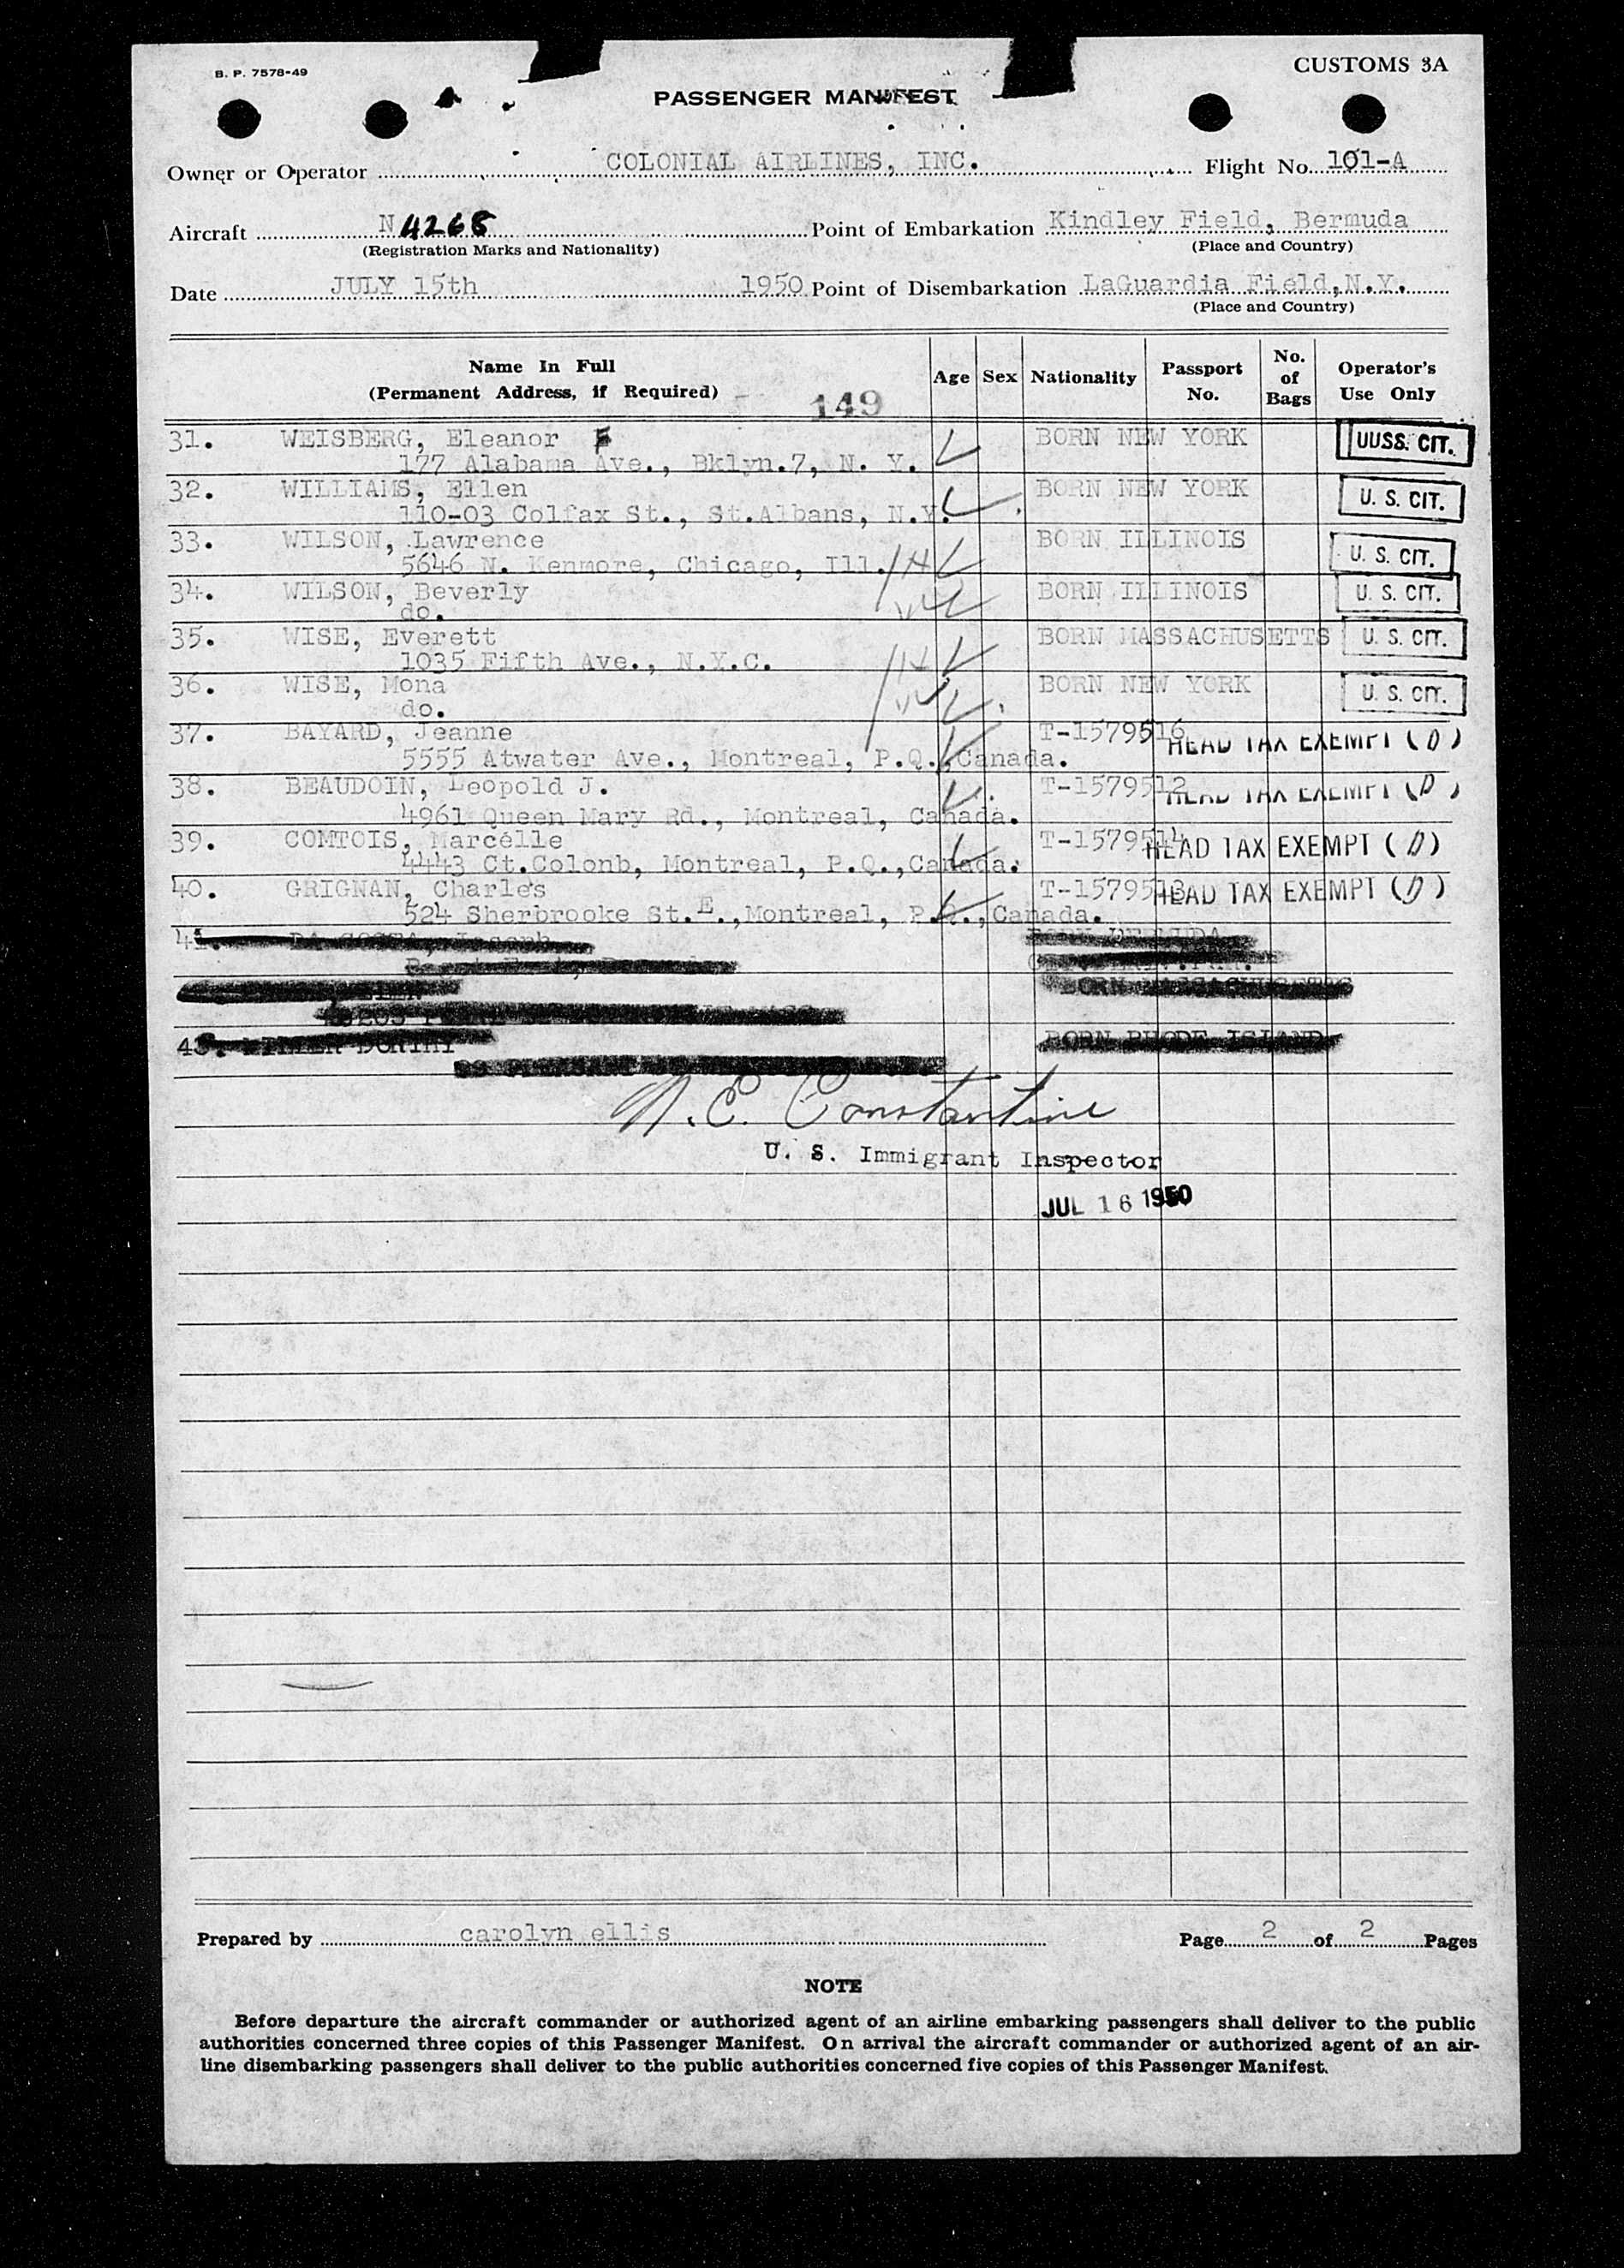 B. P. 7578-49
CUSTOMS 3A
PASSENGER MANIFEST
Owner or Operator COLONIAL AIRLINES, INC. Flight No. 101-A
Aircraft N4268 Point of Embarkation Kindley Field, Bermuda
(Registration Marks and Nationality) (Place and Country)
Date JULY 15th 1950 Point of Disembarkation LaGuardia Field,N.Y.
(Place and Country)
Name In Full (Permanent Address, if Required) Age Sex Nationality Passport No. No. of Bags Operator's Use Only
149
31. WEISBERG, Eleanor F BORN NEW YORK UUSS. CIT.
177 Alabama Ave., Bklyn.7, N. Y.
32. WILLIAMS, Ellen BORN NEW YORK U. S. CIT.
110-03 Colfax St., St.Albans, N.Y.
33. WILSON, Lawrence BORN ILLINOIS U. S. CIT.
5646 N. Kenmore, Chicago, Ill. H
34. WILSON, Beverly BORN ILLINOIS U. S. CIT.
do. W
35. WISE, Everett BORN MASSACHUSETTS U. S. CIT.
1035 Fifth Ave., N.Y.C. H
36. WISE, Mona BORN NEW YORK U. S. CIT.
do. W
37. BAYARD, Jeanne T-1579516 HEAD TAX EXEMPT (D)
5555 Atwater Ave., Montreal, P.Q.,Canada.
38. BEAUDOIN, Leopold J. T-1579512 HEAD TAX EXEMPT (D)
4961 Queen Mary Rd., Montreal, Canada.
39. COMTOIS, Marcelle T-1579514 HEAD TAX EXEMPT (D)
4443 Ct.Colonb, Montreal, P.Q.,Canada.
40. GRIGNAN, Charles T-1579513 HEAD TAX EXEMPT (D)
524 Sherbrooke St.E.,Montreal, P.Q.,Canada.
41. DA COSTA, Joseph
BORN MASSACHUSETTS
43. BORN RHODE ISLAND
N. C. Constantine
U. S. Immigrant Inspector
JUL 16 1950
Prepared by carolyn ellis Page 2 of 2 Pages
NOTE
Before departure the aircraft commander or authorized agent of an airline embarking passengers shall deliver to the public
authorities concerned three copies of this Passenger Manifest. On arrival the aircraft commander or authorized agent of an air-
line disembarking passengers shall deliver to the public authorities concerned five copies of this Passenger Manifest.